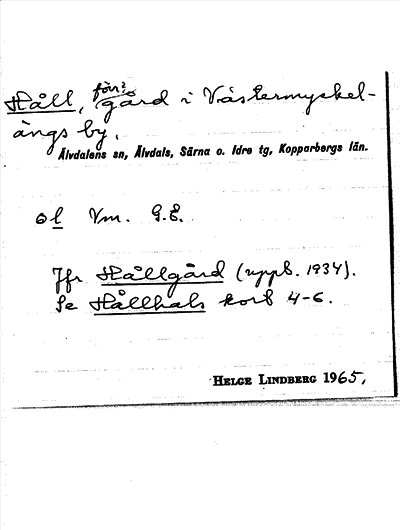 Håll, förr? gård i Västermyckel-
ängs by.
Älvdalens sn, Älvdals, Särna o. Idre tg, Kopparbergs län.
ol Vm. G.E.
Jfr Hållgård (uppb. 1934).
Se Hållhals kort 4-6.
HELGE LINDBERG 1965,